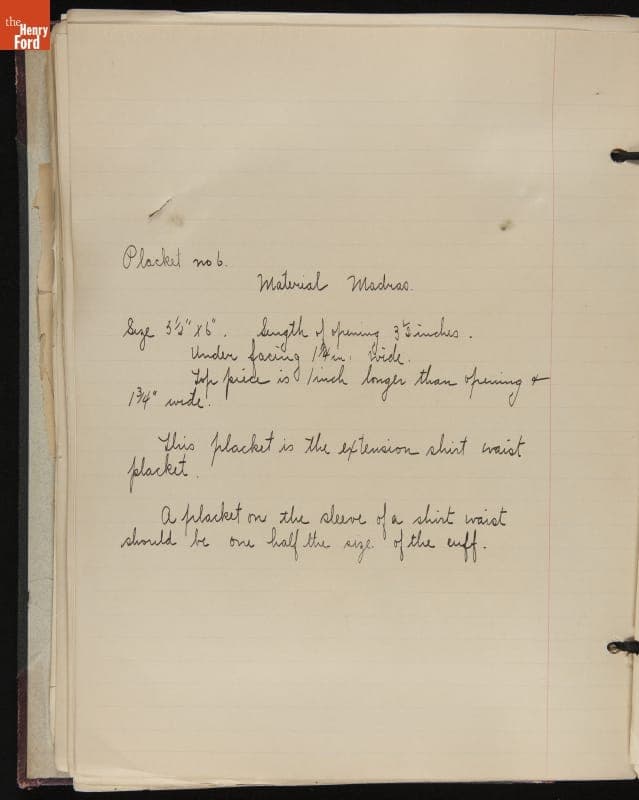 the
Henry
Ford
Placket no 6.
Material Madras.
Size 5½" x 6". Length of opening 3½ inches.
Under facing 1¼ in. wide.
Top piece is 1 inch longer than opening +
1¾" wide.
This placket is the extension shirt waist
placket.
A placket on the sleeve of a shirt waist
should be one half the size of the cuff.